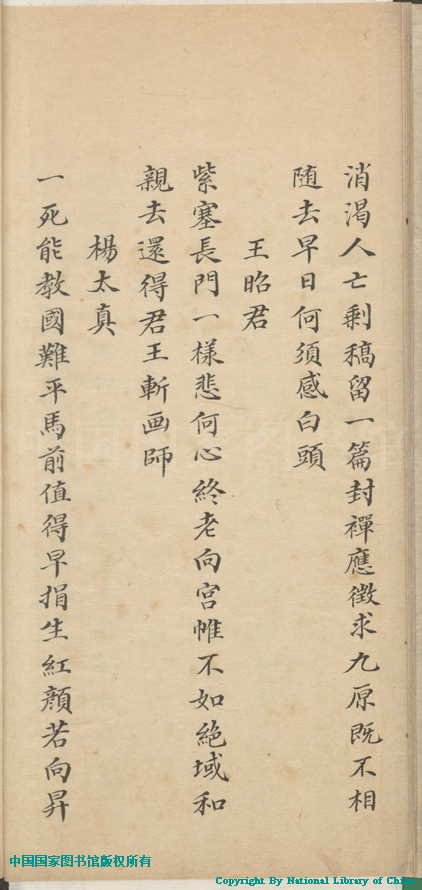 消渴人亡剩稿留一篇封禪應徵求九原既不相
随去早日何須感白頭
王昭君
紫塞長門一樣悲何心終老向宫帷不如絶域和
親去還得君王斬画師
楊太真
一死能教國難平馬前值得早捐生紅顔若向昇
中国国家图书馆版权所有
Copyright By National Library of China